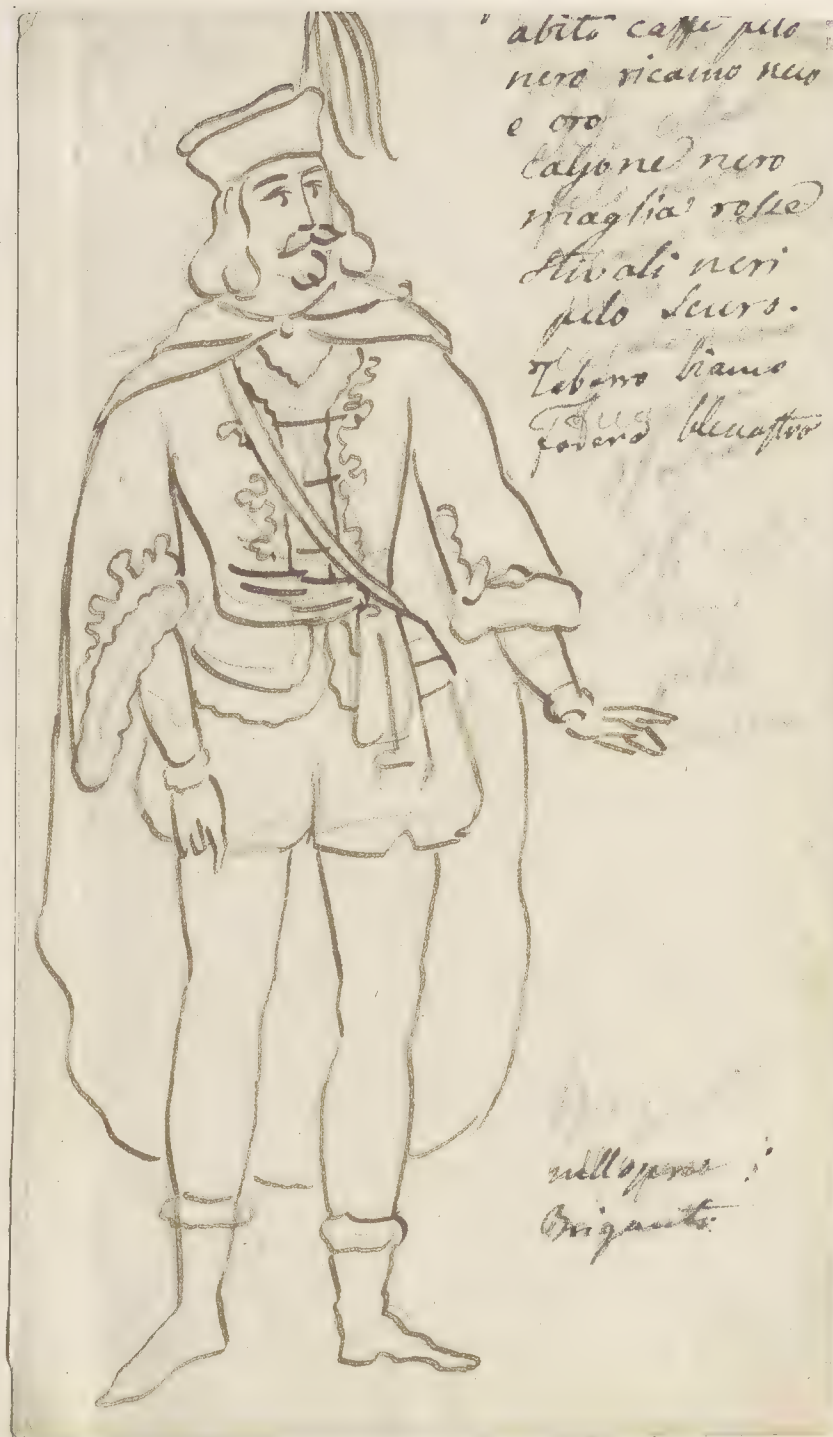 abito caffe pelo
nero ricamo nero
e oro
Calzone nero
maglia rosse
Stivali neri
pelo scuro.
Tabarro bianco
fodera bleuastro
nell'opera i
Briganti